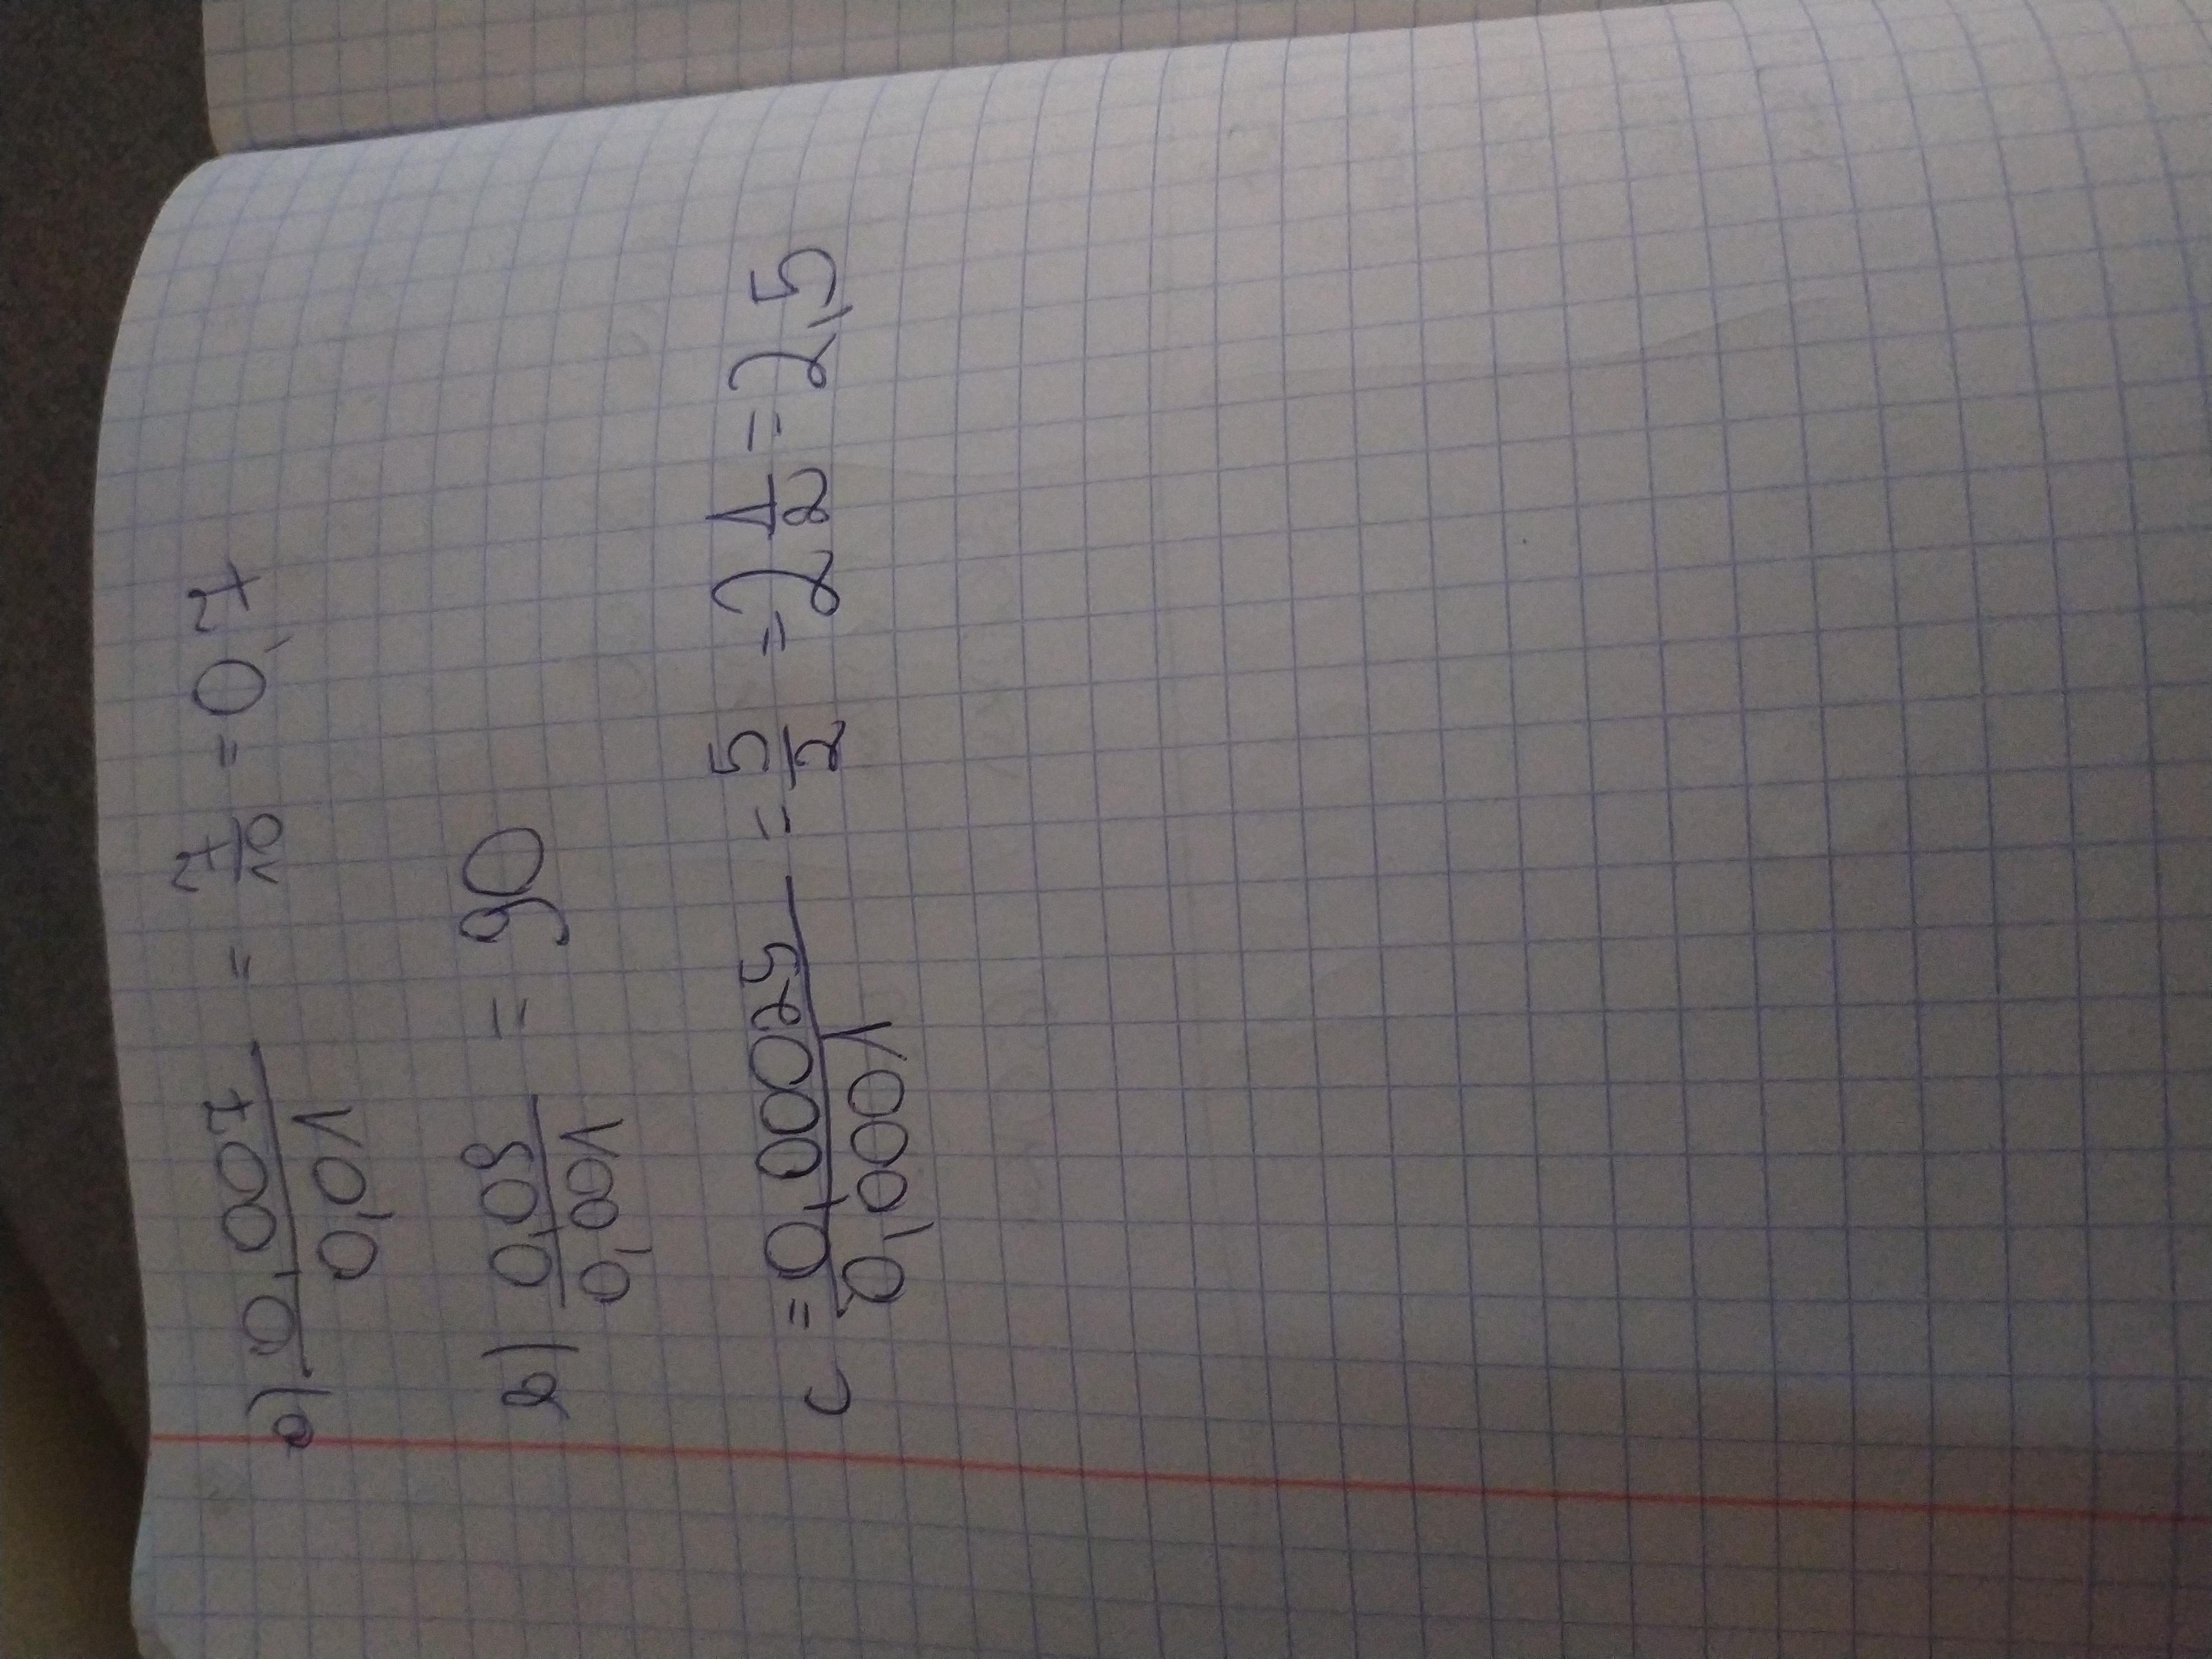 a) 0,007/0,01 = 7/10 = 0,7
b) 0,09/0,001 = 90
c = 0,00025/0,0001 = 5/2 = 2 1/2 = 2,5